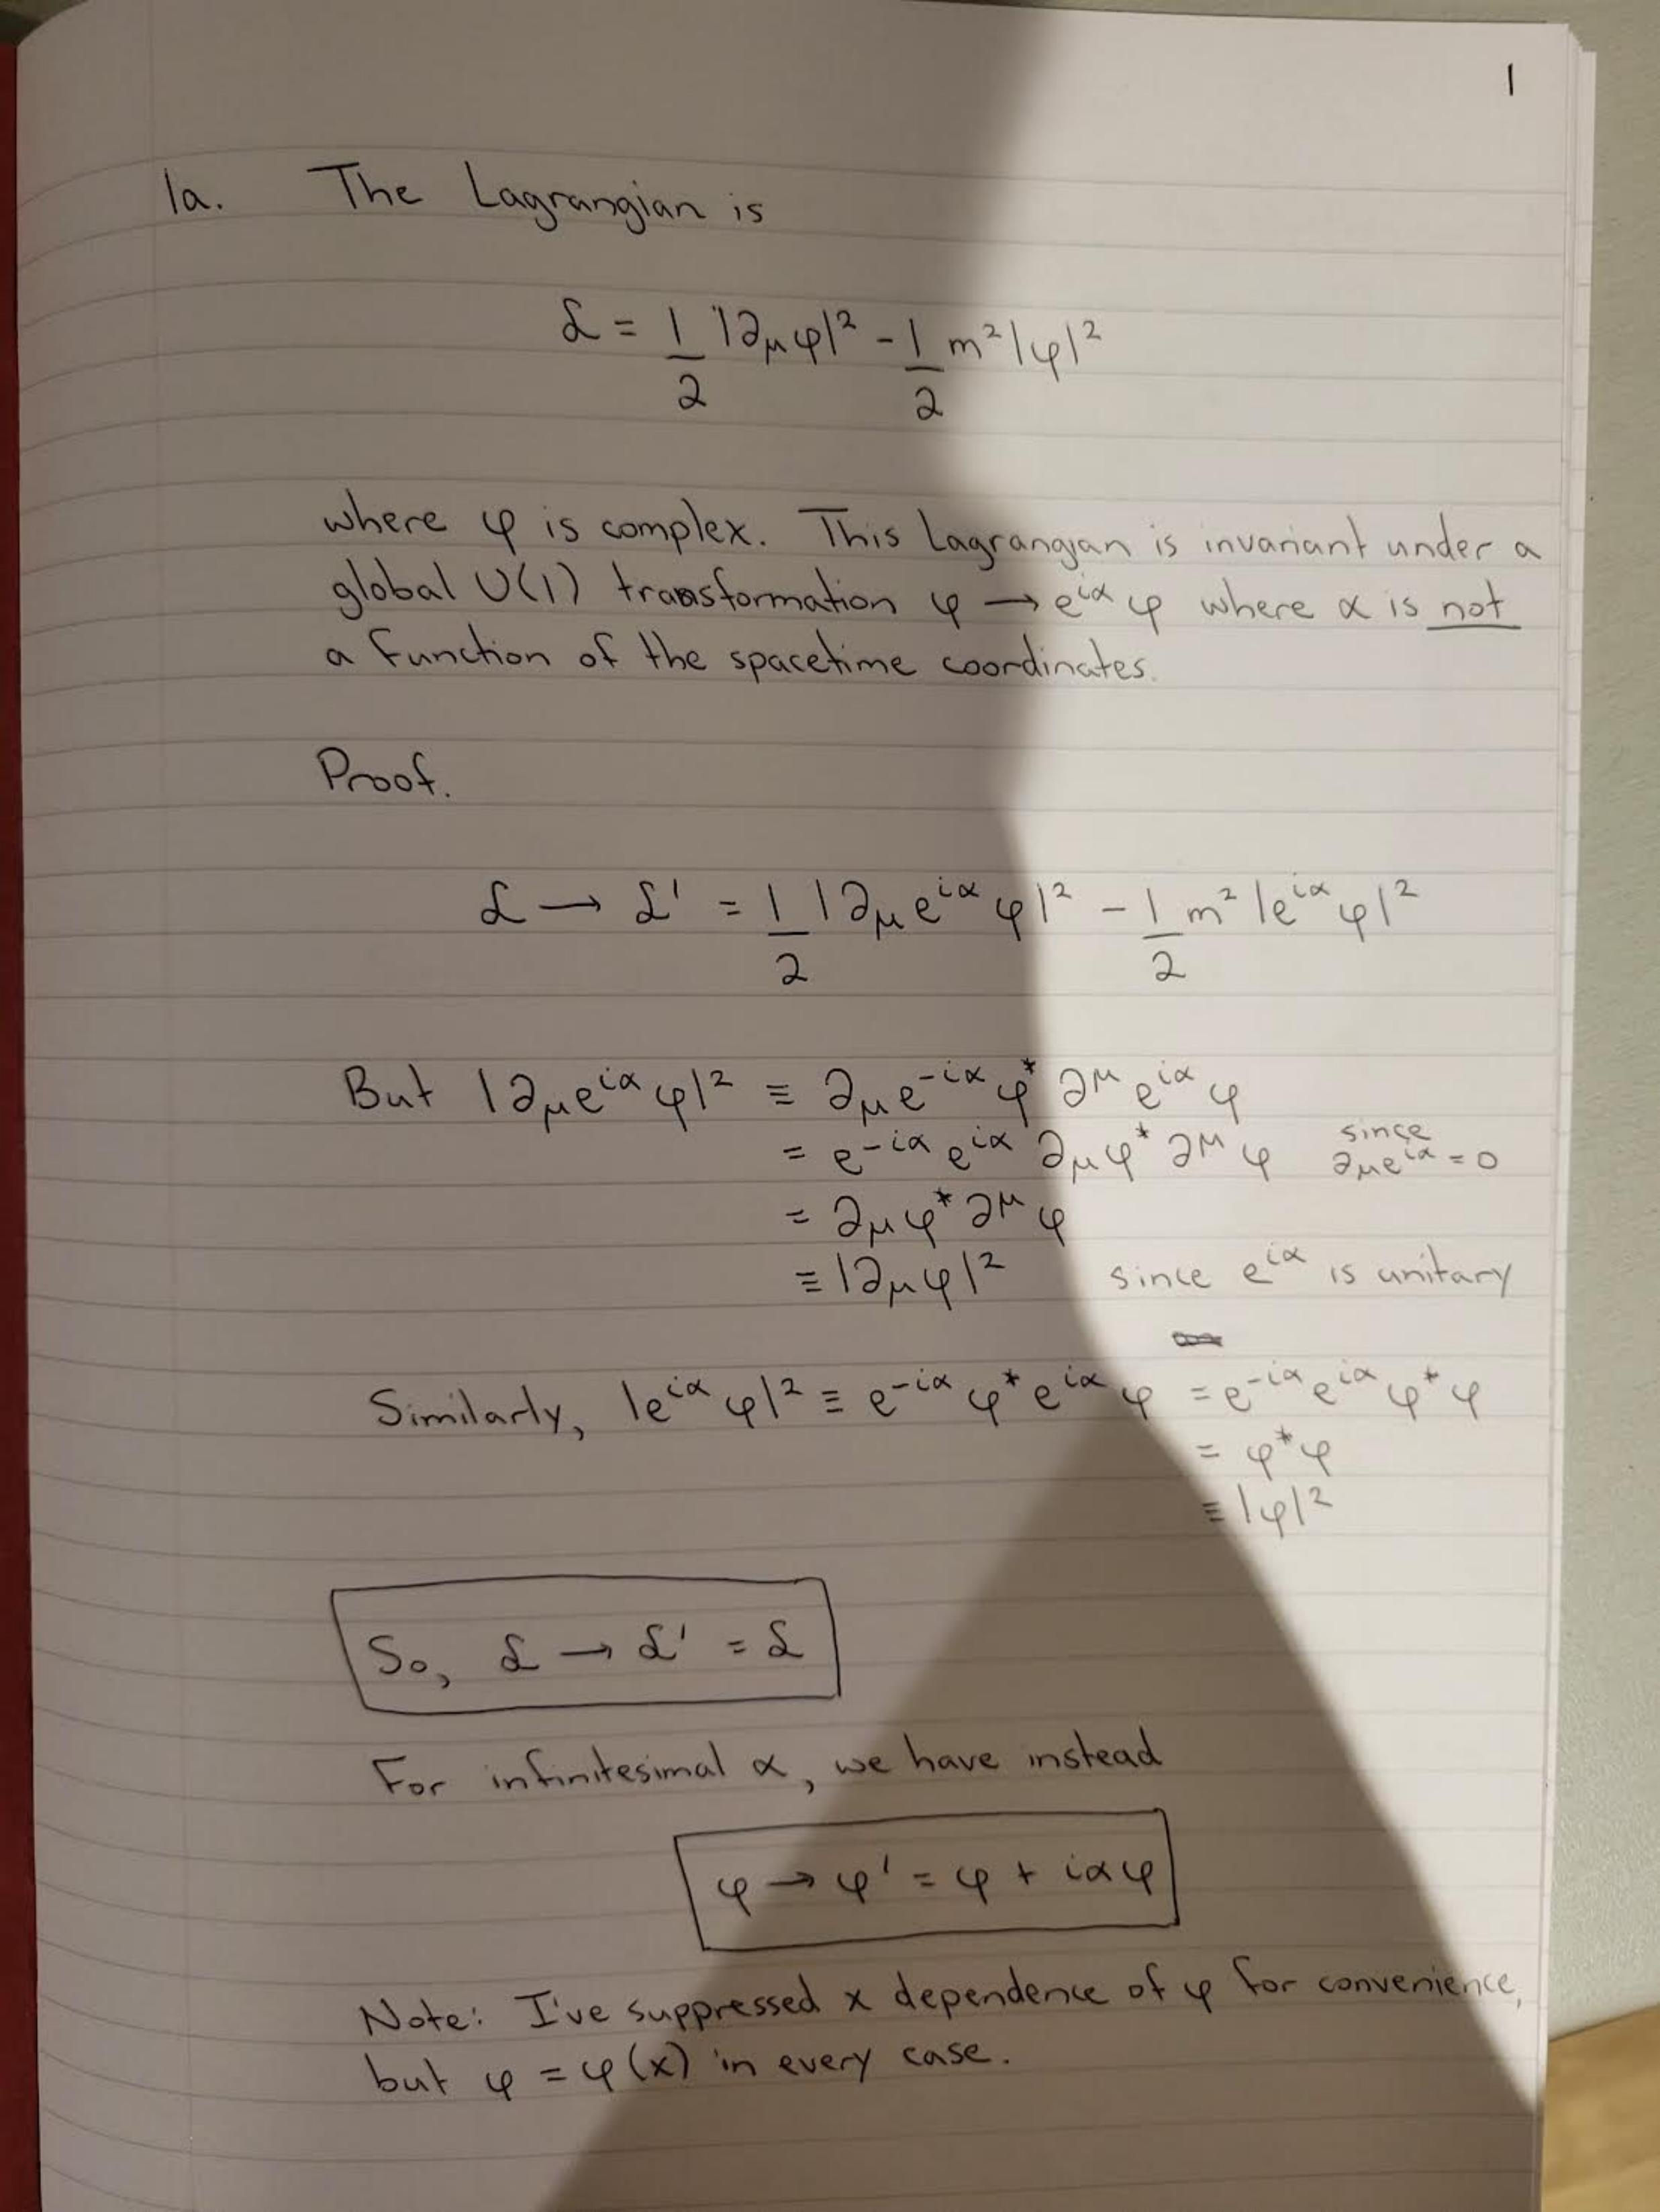 1
1a. The Lagrangian is
ℒ = 1/2 |∂_μ φ|² - 1/2 m² |φ|²
where φ is complex. This Lagrangian is invariant under a
global U(1) transformation φ → e^{iα} φ where α is not
a function of the spacetime coordinates.
Proof.
ℒ → ℒ' = 1/2 |∂_μ e^{iα} φ|² - 1/2 m² |e^{iα} φ|²
But |∂_μ e^{iα} φ|² ≡ ∂_μ e^{-iα} φ* ∂^μ e^{iα} φ
= e^{-iα} e^{iα} ∂_μ φ* ∂^μ φ since ∂_μ e^{iα} = 0
= ∂_μ φ* ∂^μ φ
≡ |∂_μ φ|² since e^{iα} is unitary
Similarly, |e^{iα} φ|² ≡ e^{-iα} φ* e^{iα} φ = e^{-iα} e^{iα} φ* φ
= φ* φ
≡ |φ|²
So, ℒ → ℒ' = ℒ
For infinitesimal α, we have instead
φ → φ' = φ + iαφ
Note: I've suppressed x dependence of φ for convenience,
but φ = φ(x) in every case.